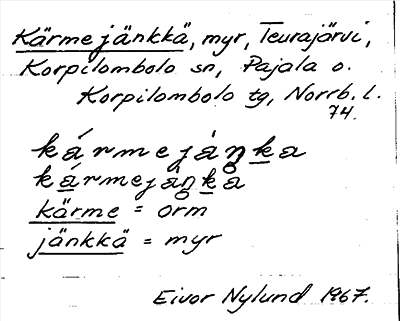 Kärmejänkkä, myr, Teurajärvi,
Korpilombolo sn, Pajala o.
Korpilombolo tg, Norrb. l.
74.
kármejáŋka
kármejáŋkå
kärme = orm
jänkkä = myr
Eivor Nylund 1967.